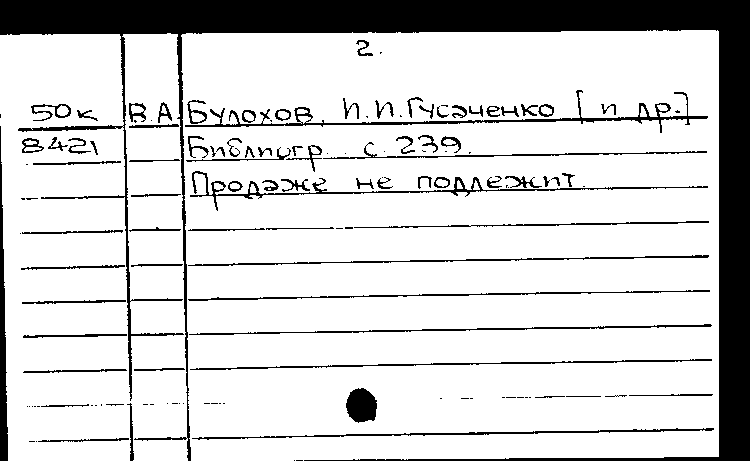 2.
50к В.А. Булохов, И.И.Гусаченко [и др.]
8421 Библиогр. с. 239.
Продаже не подлежит.